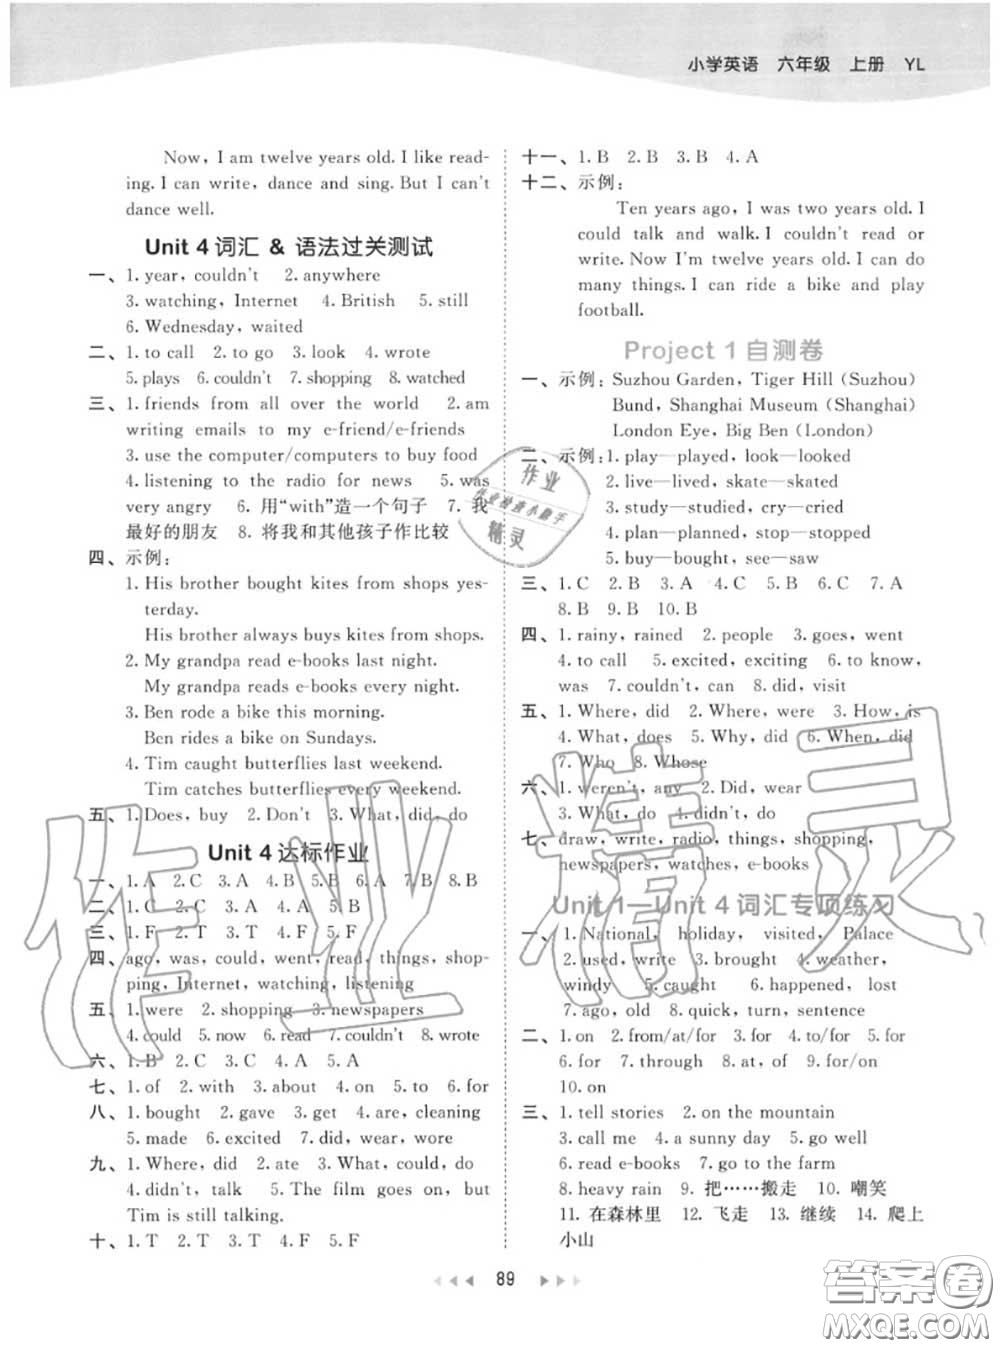 小学英语 六年级 上册 YL
Now, I am twelve years old. I like read-
ing. I can write, dance and sing. But I can't
dance well.
Unit 4 词汇 & 语法过关测试
一、1. year, couldn't 2. anywhere
3. watching, Internet 4. British 5. still
6. Wednesday, waited
二、1. to call 2. to go 3. look 4. wrote
5. plays 6. couldn't 7. shopping 8. watched
三、1. friends from all over the world 2. am
writing emails to my e-friend/e-friends
3. use the computer/computers to buy food
4. listening to the radio for news 5. was
very angry 6. 用“with”造一个句子 7. 我
最好的朋友 8. 将我和其他孩子作比较
四、示例:
1. His brother bought kites from shops yes-
terday.
His brother always buys kites from shops.
2. My grandpa read e-books last night.
My grandpa reads e-books every night.
3. Ben rode a bike this morning.
Ben rides a bike on Sundays.
4. Tim caught butterflies last weekend.
Tim catches butterflies every weekend.
五、1. Does, buy 2. Don't 3. What, did, do
Unit 4 达标作业
一、1. A 2. C 3. A 4. B 5. B 6. A 7. B 8. B
二、1. C 2. C 3. A 4. A 5. C
三、1. F 2. T 3. T 4. F 5. F
四、ago, was, could, went, read, things, shop-
ping, Internet, watching, listening
五、1. were 2. shopping 3. newspapers
4. could 5. now 6. read 7. couldn't 8. wrote
六、1. B 2. C 3. C 4. A 5. A
七、1. of 2. with 3. about 4. on 5. to 6. for
八、1. bought 2. gave 3. get 4. are, cleaning
5. made 6. excited 7. did, wear, wore
九、1. Where, did 2. ate 3. What, could, do
4. didn't, talk 5. The film goes on, but
Tim is still talking.
十、1. T 2. T 3. T 4. F 5. F
十一、1. B 2. B 3. B 4. A
十二、示例:
Ten years ago, I was two years old. I
could talk and walk. I couldn't read or
write. Now I'm twelve years old. I can do
many things. I can ride a bike and play
football.
Project 1 自测卷
一、示例: Suzhou Garden, Tiger Hill (Suzhou)
Bund, Shanghai Museum (Shanghai)
London Eye, Big Ben (London)
二、示例: 1. play—played, look—looked
2. live—lived, skate—skated
3. study—studied, cry—cried
4. plan—planned, stop—stopped
5. buy—bought, see—saw
三、1. C 2. B 3. A 4. C 5. B 6. C 7. A
8. B 9. B 10. B
四、1. rainy, rained 2. people 3. goes, went
4. to call 5. excited, exciting 6. to know,
was 7. couldn't, can 8. did, visit
五、1. Where, did 2. Where, were 3. How, is
4. What, does 5. Why, did 6. When, did
7. Who 8. Whose
六、1. weren't, any 2. Did, wear
3. What, do 4. didn't, do
七、draw, write, radio, things, shopping,
newspapers, watches, e-books
Unit 1—Unit 4 词汇专项练习
一、1. National, holiday, visited, Palace
2. used, write 3. brought 4. weather,
windy 5. caught 6. happened, lost
7. ago, old 8. quick, turn, sentence
二、1. on 2. from/at/for 3. for 4. to 5. for
6. for 7. through 8. at, of 9. for/in
10. on
三、1. tell stories 2. on the mountain
3. call me 4. a sunny day 5. go well
6. read e-books 7. go to the farm
8. heavy rain 9. 把……搬走 10. 嘲笑
11. 在森林里 12. 飞走 13. 继续 14. 爬上
小山
89
作业
作业检查小助手
精灵
作业精灵
答案卷
MXQE.COM